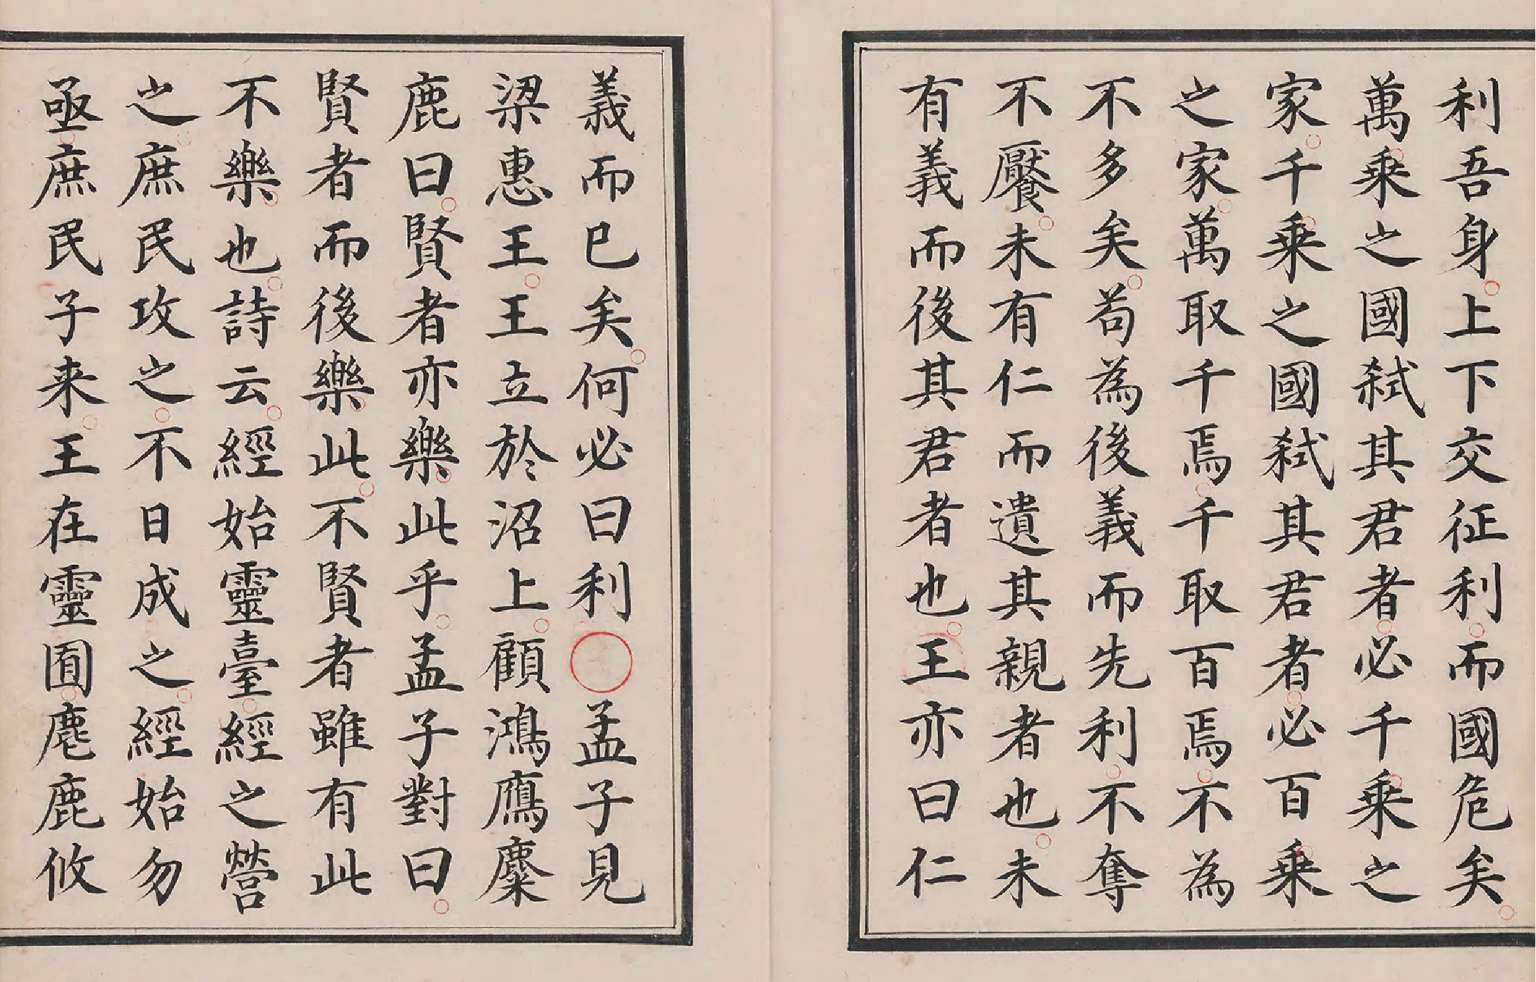 利吾身上下交征利而國危矣
萬乘之國弑其君者必千乘之
家千乘之國弑其君者必百乘
之家萬取千焉千取百焉不為
不多矣苟為後義而先利不奪
不饜未有仁而遺其親者也未
有義而後其君者也王亦曰仁
義而已矣何必曰利〇孟子見
梁惠王王立於沼上顧鴻鴈麋
鹿曰賢者亦樂此乎孟子對曰
賢者而後樂此不賢者雖有此
不樂也詩云經始靈臺經之營
之庶民攻之不日成之經始勿
亟庶民子来王在靈囿麀鹿攸